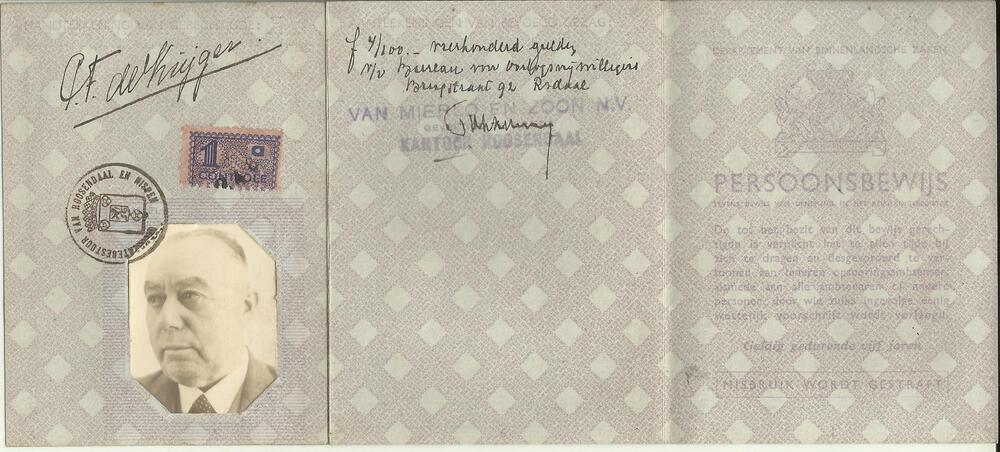 HANDTEEKENING VAN DEN HOUDER
1
CONTROLE
GEMEENTEBESTUUR VAN ROOSENDAAL EN NISPEN
AANTEEKENINGEN VAN BEVOEGD GEZAG
f 4/100.- vierhonderd gulden
Bureau voor Oorlogsvrijwilligers
Brugstraat 92
VAN MIERLO EN ZOON N.V.
KANTOOR ROOSENDAAL
DEPARTEMENT VAN BINNENLANDSCHE ZAKEN
PERSOONSBEWIJS
De tot het bezit van dit bewijs gerech-
tigde is verplicht het te allen tijde bij
zich te dragen en desgevorderd te ver-
toonen aan iederen opsporingsambtenaar,
alsmede aan alle ambtenaren of andere
personen, door wie zulks ingevolge eenig
wettelijk voorschrift wordt verlangd.
Geldig gedurende vijf jaren
MISBRUIK WORDT GESTRAFT